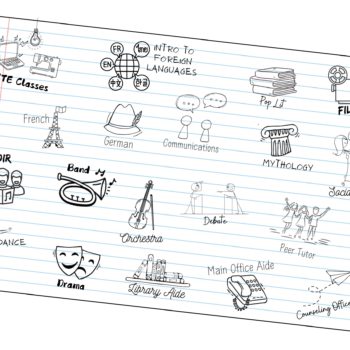 CTE Classes
FR
EN
中文
한국
INTRO TO
FOREIGN
LANGUAGES
Pop Lit
FIL
French
German
Communications
MYTHOLOGY
Social
OIR
Band
DANCE
Orchestra
Debate
Peer Tutor
Drama
Library Aide
Main Office Aide
Counseling Office